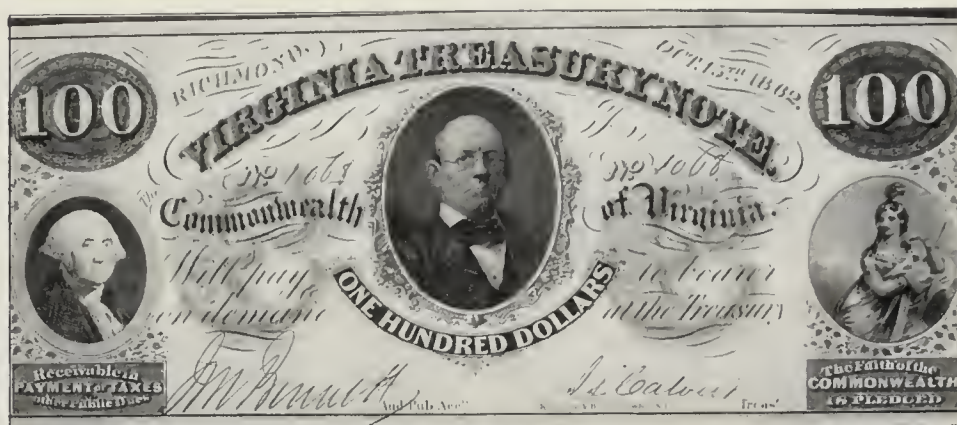 100
RICHMOND,
OCT. 15TH. 1862.
100
VIRGINIA TREASURY NOTE.
No 1068
No 1068
The Commonwealth of Virginia.
Will pay to bearer
on demand at the Treasury
ONE HUNDRED DOLLARS
Receivable in
PAYMENT of TAXES
other Public Dues
The Faith of the
COMMONWEALTH
IS PLEDGED
Aud. Pub. Acc'ts
Treas'